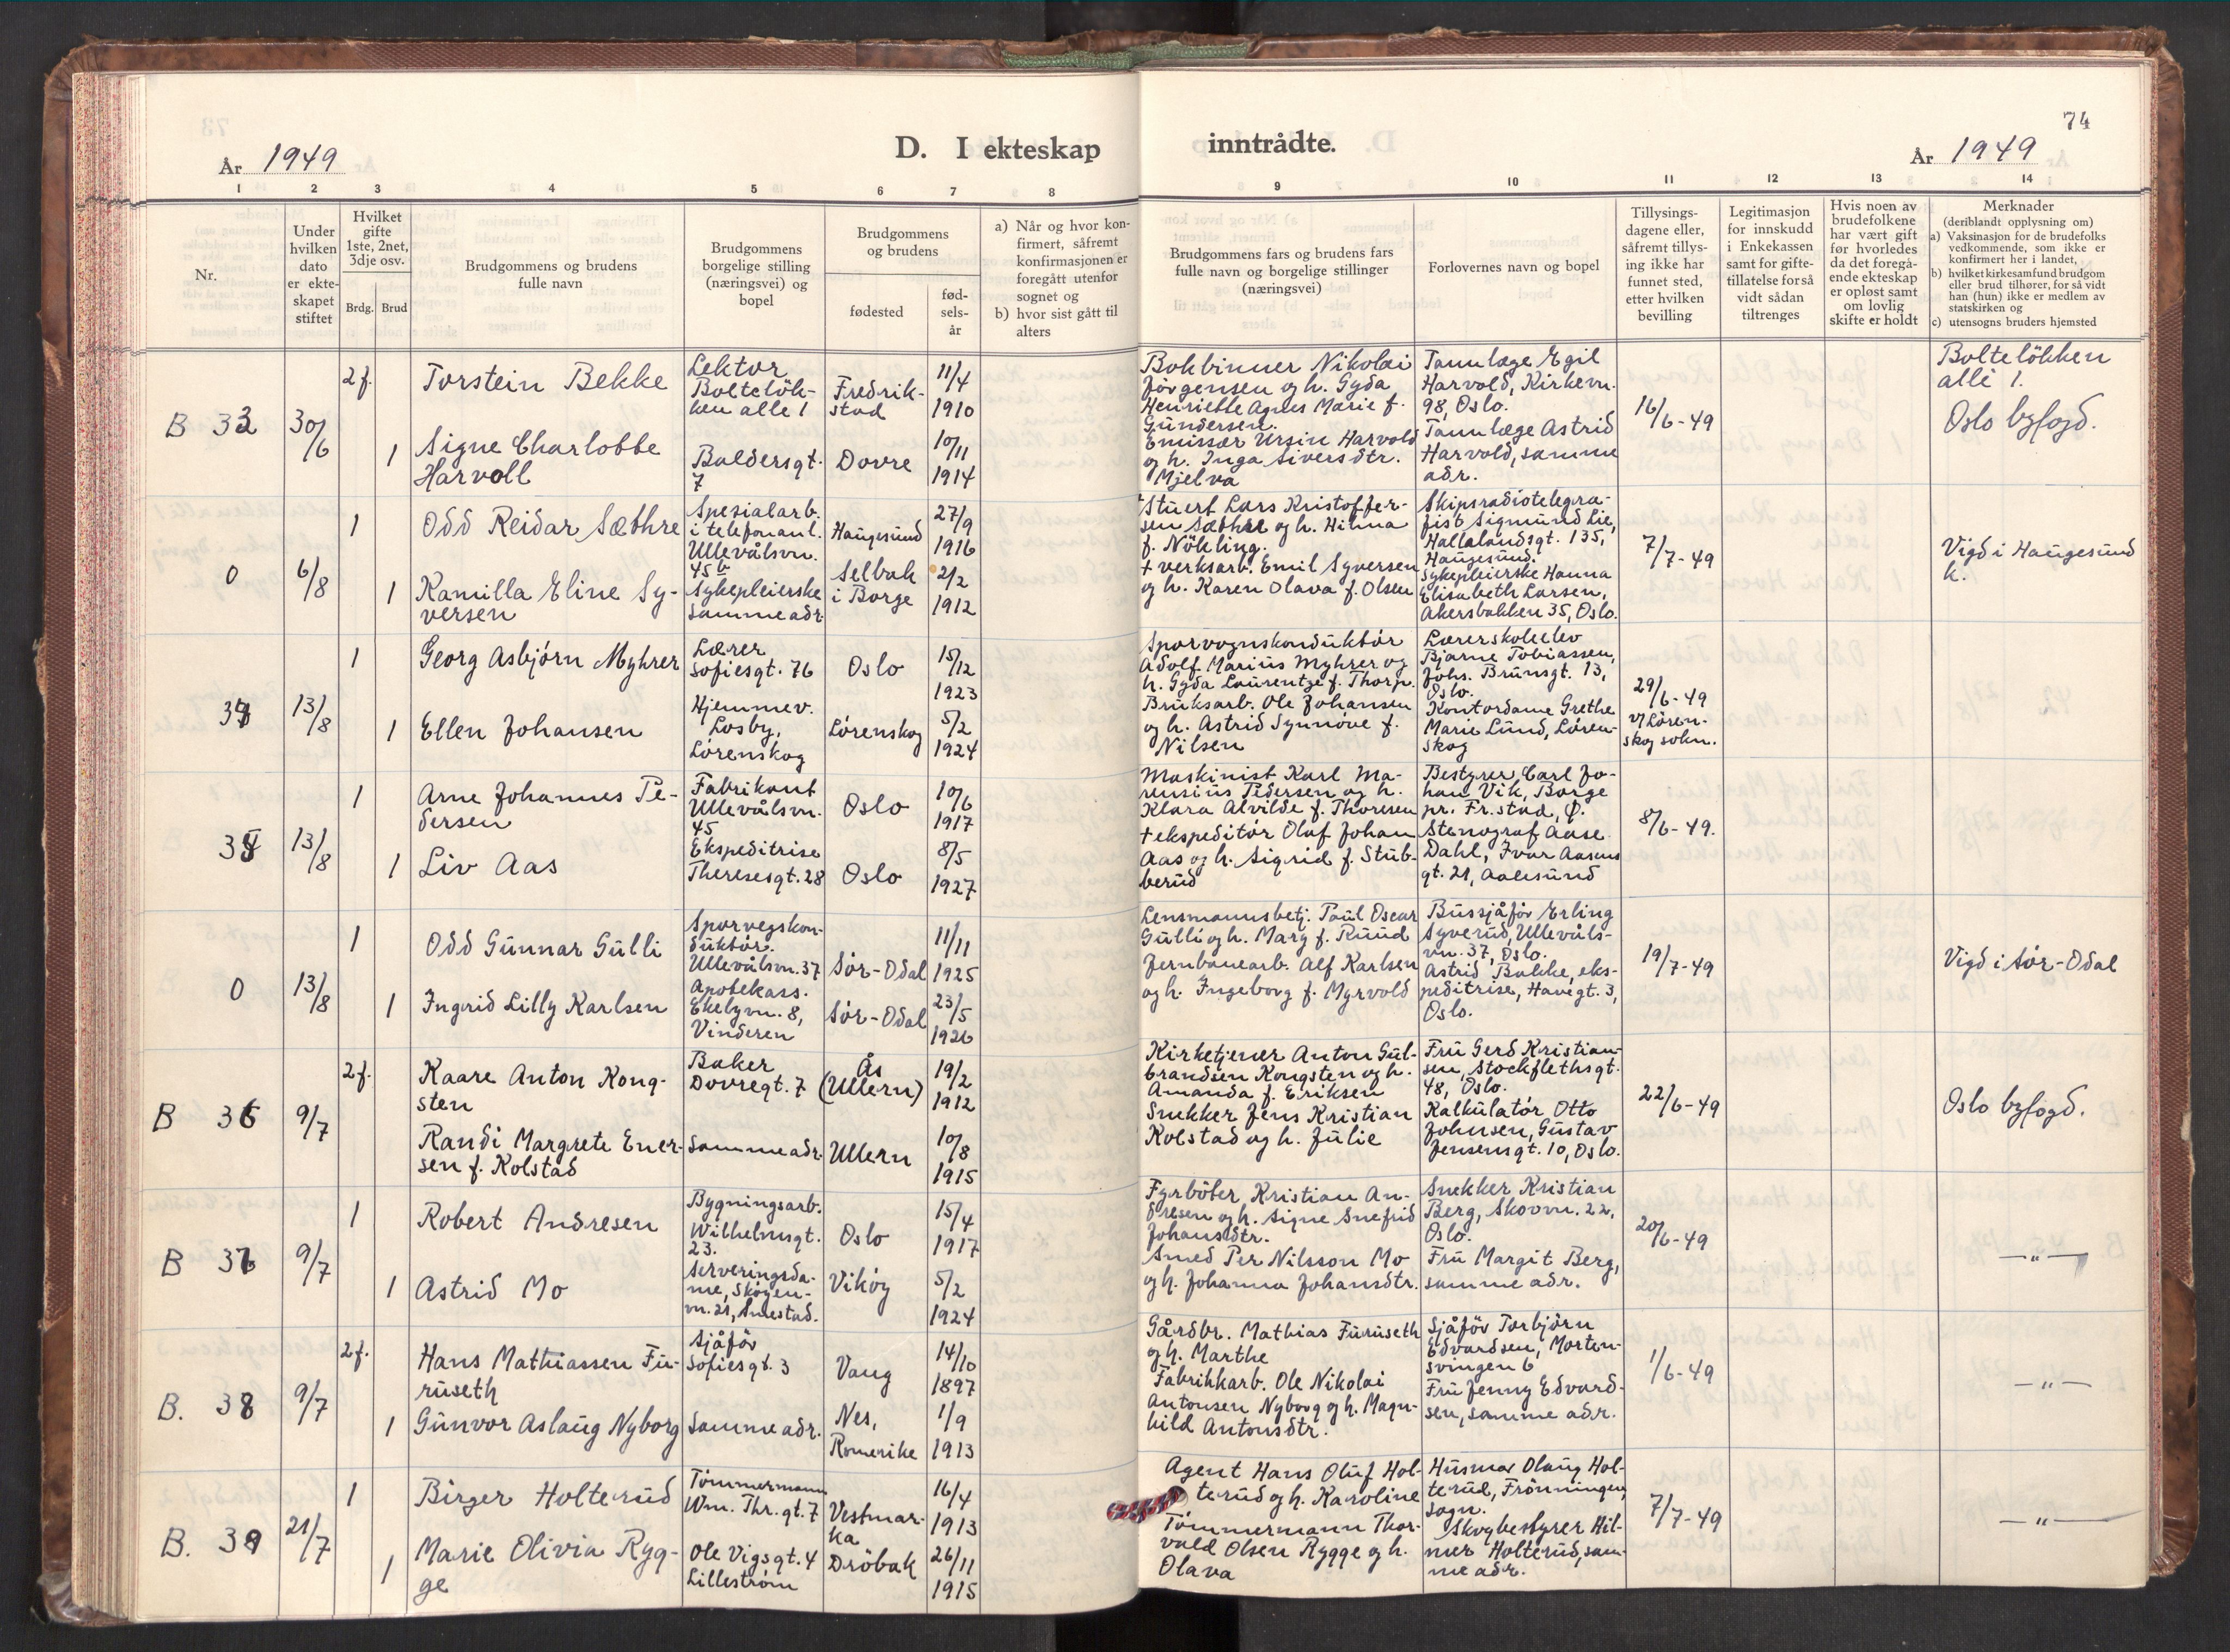 74
År 1949
D. I ekteskap inntrådte.
År 1949
1 2 3 4 5 6 7 8 9 10 11 12 13 14
Nr.
Under
hvilken
dato
er ekte-
skapet
stiftet
Hvilket
gifte
1ste, 2net,
3dje osv.
Brdg. Brud
Brudgommens og brudens
fulle navn
Brudgommens
borgelige stilling
(næringsvei) og
bopel
Brudgommens
og brudens
fødested
fød-
sels-
år
a) Når og hvor kon-
firmert, såfremt
konfirmasjonen er
foregått utenfor
sognet og
b) hvor sist gått til
alters
Brudgommens fars og brudens fars
fulle navn og borgelige stillinger
(næringsvei)
Forlovernes navn og bopel
Tillysings-
dagene eller,
såfremt tillys-
ing ikke har
funnet sted,
etter hvilken
bevilling
Legitimasjon
for innskudd
i Enkekassen
samt for gifte-
tillatelse forså
vidt sådan
tiltrenges
Hvis noen av
brudefolkene
har vært gift
før hvorledes
da det foregå-
ende ekteskap
er opløst samt
om lovlig
skifte er holdt
Merknader
(deriblandt opplysning om)
a) Vaksinasjon for de brudefolks
vedkommende, som ikke er
konfirmert her i landet,
b) hvilket kirkesamfund brudgom
eller brud tilhører, for så vidt
han (hun) ikke er medlem av
statskirken og
c) utensogns bruders hjemsted
B 33
30/6
2 f.
Torstein Bekke
Lektor
Bolteløk-
ken alle 1
Fredrik-
stad
11/4
1910
1
Signe Charlotte
Harvoll
Baldersgt.
7
Dovre
10/11
1914
Bokbinner Nikolai
Jörgensen og h. Gyda
Henriette Agnes Marie f.
Gundersen.
Emissær Ursin Harvold
og h. Inga Siversdtr.
Mjelva
Tannlæge Egil
Harvold, Kirkevn.
98, Oslo.
Tannlæge Astrid
Harvold, samme
adr.
16/6-49
Bolteløkken
allè 1.
Oslo byfogd.
0
6/8
1
Odd Reidar Sæthre
Spesialarb.
i telefonanl.
Ullevålsvn.
45b
Haugesund
27/9
1916
1
Kamilla Eline Sy-
versen
Sykepleierske
samme adr.
Selbak
i Borge
2/2
1912
+Stuert Lars Kristoffer-
sen Sæthre og h. Hilma
f. Nökling.
+ verksarb. Emil Syversen
og h. Karen Olava f. Olsen
Skipsradiotelegra-
fist Sigmund Lie,
Hallalandsgt. 135,
Haugesund.
Sykepleierske Hanna
Elisabeth Larsen,
Akersbakken 35, Oslo.
7/7-49
Vigd i Haugesund
k.
34
13/8
1
Georg Asbjørn Myhrer
Lærer
Sofiesgt. 76
Oslo
15/12
1923
1
Ellen Johansen
Hjemmev.
Losby,
Lørenskog
Lørenskog
5/2
1924
Sporvognskonduktør
Adolf Marius Myhrer og
h. Gyda Laurentze f. Thorp.
Bruksarb. Ole Johansen
og h. Astrid Synnøve f.
Nilsen
Lærerskoleelev
Bjarne Tobiassen,
Johs. Brunsgt. 13,
Oslo.
Kontordame Grethe
Marie Lund, Løren-
skog
29/6-49
v/ Løren-
skog sokn.
35
13/8
1
Arne Johannes Pe-
dersen
Fabrikant
Ullevålsvn.
45
Oslo
10/6
1917
1
Liv Aas
Ekspeditrise
Theresesgt. 28
Oslo
8/5
1927
Maskinist Karl Ma-
rensius Pedersen og h.
Klara Alvilde f. Thoresen
+ ekspeditør Olaf Johan
Aas og h. Sigrid f. Stub-
berud
Bestyrer Carl Jo-
han Vik, Borge
pr. Fr.stad, Ø.
Stenograf Aase
Dahl, Ivar Aasens
gt. 21, Aalesund
8/6-49.
0
13/8
1
Odd Gunnar Gulli
Sporvegskon-
duktør.
Ullevålsvn. 37
Sør-Odal
11/11
1925
1
Ingrid Lilly Karlsen
Apotekass.
Ekelyvn. 8,
Vinderen
Sør-Odal
23/5
1926
Lensmannsbetj. Paul Oscar
Gulli og h. Mary f. Ruud
Jernbanearb. Alf Karlsen
og h. Ingeborg f. Myrvold
Bussjåfør Erling
Syverud, Ullevåls-
vn. 37, Oslo.
Astrid Bakke, eks-
peditrise, Havegt. 3,
Oslo.
19/7-49
Vigd i Sør-Odal
B 36
9/7
2 f.
Kaare Anton Kong-
sten
Baker
Dovregt. 7
Ås
(Ullern)
19/2
1912
Randi Margrete Ener-
sen f. Kolstad
samme adr.
Ullern
10/8
1915
Kirketjener Anton Gul-
brandsen Kongsten og h.
Amanda f. Eriksen
Snekker Jens Kristian
Kolstad og h. Julie
Fru Gerd Kristian-
sen, Stockflethsgt.
48, Oslo.
Kalkulatør Otto
Johnsen, Gustav
Jensensgt. 10, Oslo.
22/6-49
Oslo byfogd.
B 37
9/7
1
Robert Andresen
Bygningsarb.
Wilhelmsgt.
23.
Oslo
15/4
1917
1
Astrid Mo
Serveringsda-
me, Skøyen-
vn. 21, Smestad.
Vikøy
5/2
1924
Fyrböter Kristian An-
dresen og h. Signe Snefrid
Johansdtr.
Smed Per Nilsson Mo
og h. Johanna Johansdtr.
Snekker Kristian
Berg, Skovvn. 22,
Oslo.
Fru Margit Berg,
samme adr.
20/6-49
—"—
B. 38
9/7
2 f.
Hans Mathiassen Fu-
ruseth
Sjåfør
Sofiesgt. 3
Vang
14/10
1897
1
Gunvor Aslaug Nyborg
Samme adr.
Nes,
Romerike
1/9
1913
Gårdbr. Mathias Furuseth
og h. Marthe
Fabrikkarb. Ole Nikolai
Antonsen Nyborg og h. Magn-
hild Antonsdtr.
Sjåfør Torbjørn
Edvardsen, Morten-
svingen 6
Fru Jenny Edvard-
sen, samme adr.
1/6-49
—"—
B. 39
21/7
1
Birger Holterud
Tømmermann
Wm. Thr. gt. 7
Vestmar-
ka
16/4
1913
1
Marie Olivia Ryg-
ge
Ole Vigsgt. 4
Lillestrøm
Dröbak
26/11
1915
Agent Hans Oluf Hol-
terud og h. Karoline
Tømmermann Thor-
vald Olsen Rygge og h.
Olava
Husmor Olaug Hol-
terud, Frønningen
sogn.
Skogbestyrer Hil-
mer Holterud, sam-
me adr.
7/7-49
—"—